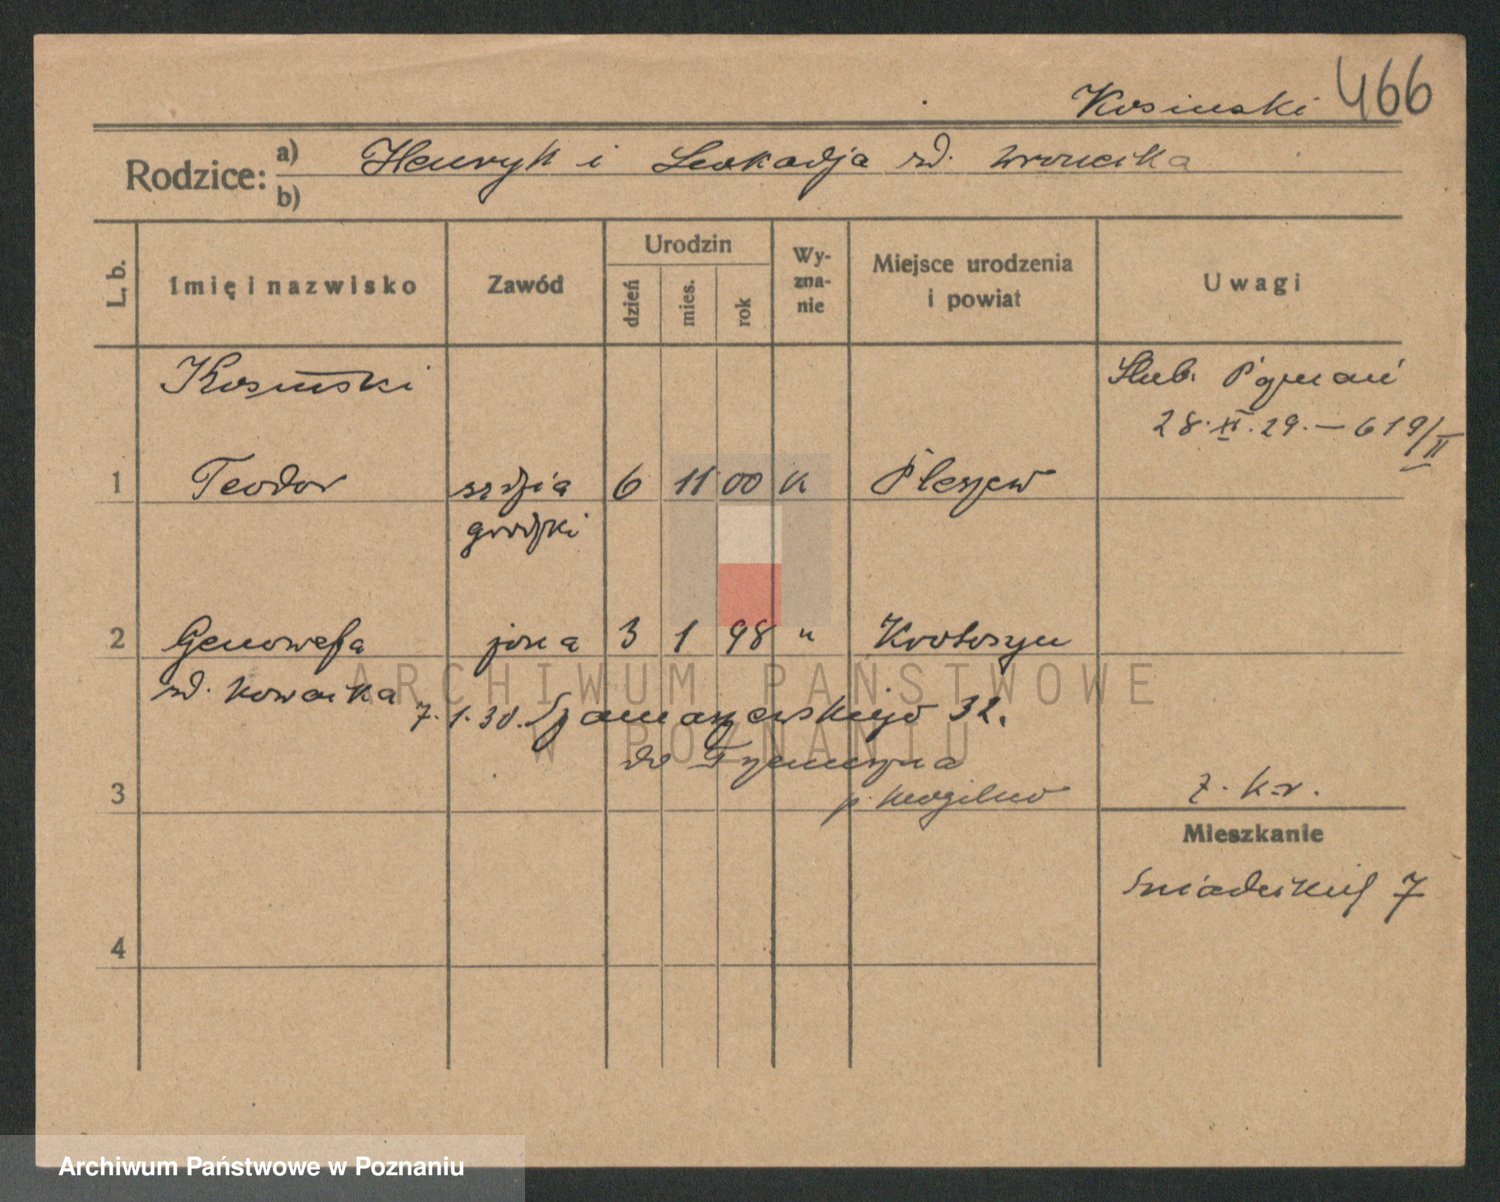 Kosinski 466
Rodzice: a) Henryk i Leokadja zd. Wronecka
b)
L. b. Imię i nazwisko Zawód Urodzin dzień mies. rok Wy-zna-nie Miejsce urodzenia i powiat Uwagi
Kosiński Ślub. Poznań
28.XI.29. — 619/II
1 Teodor sędzia 6 11 00 k Pleszew
grodzki
2 Genowefa żona 3 1 98 " Krotoszyn
zd. Nowacka
7.1.30. Szamarzewskiego 32.
do Trzemeszna
3 p. Mogilno z. k-r.
Mieszkanie
Śniadeckich 7
4
ARCHIWUM PAŃSTWOWE
W POZNANIU
Archiwum Państwowe w Poznaniu